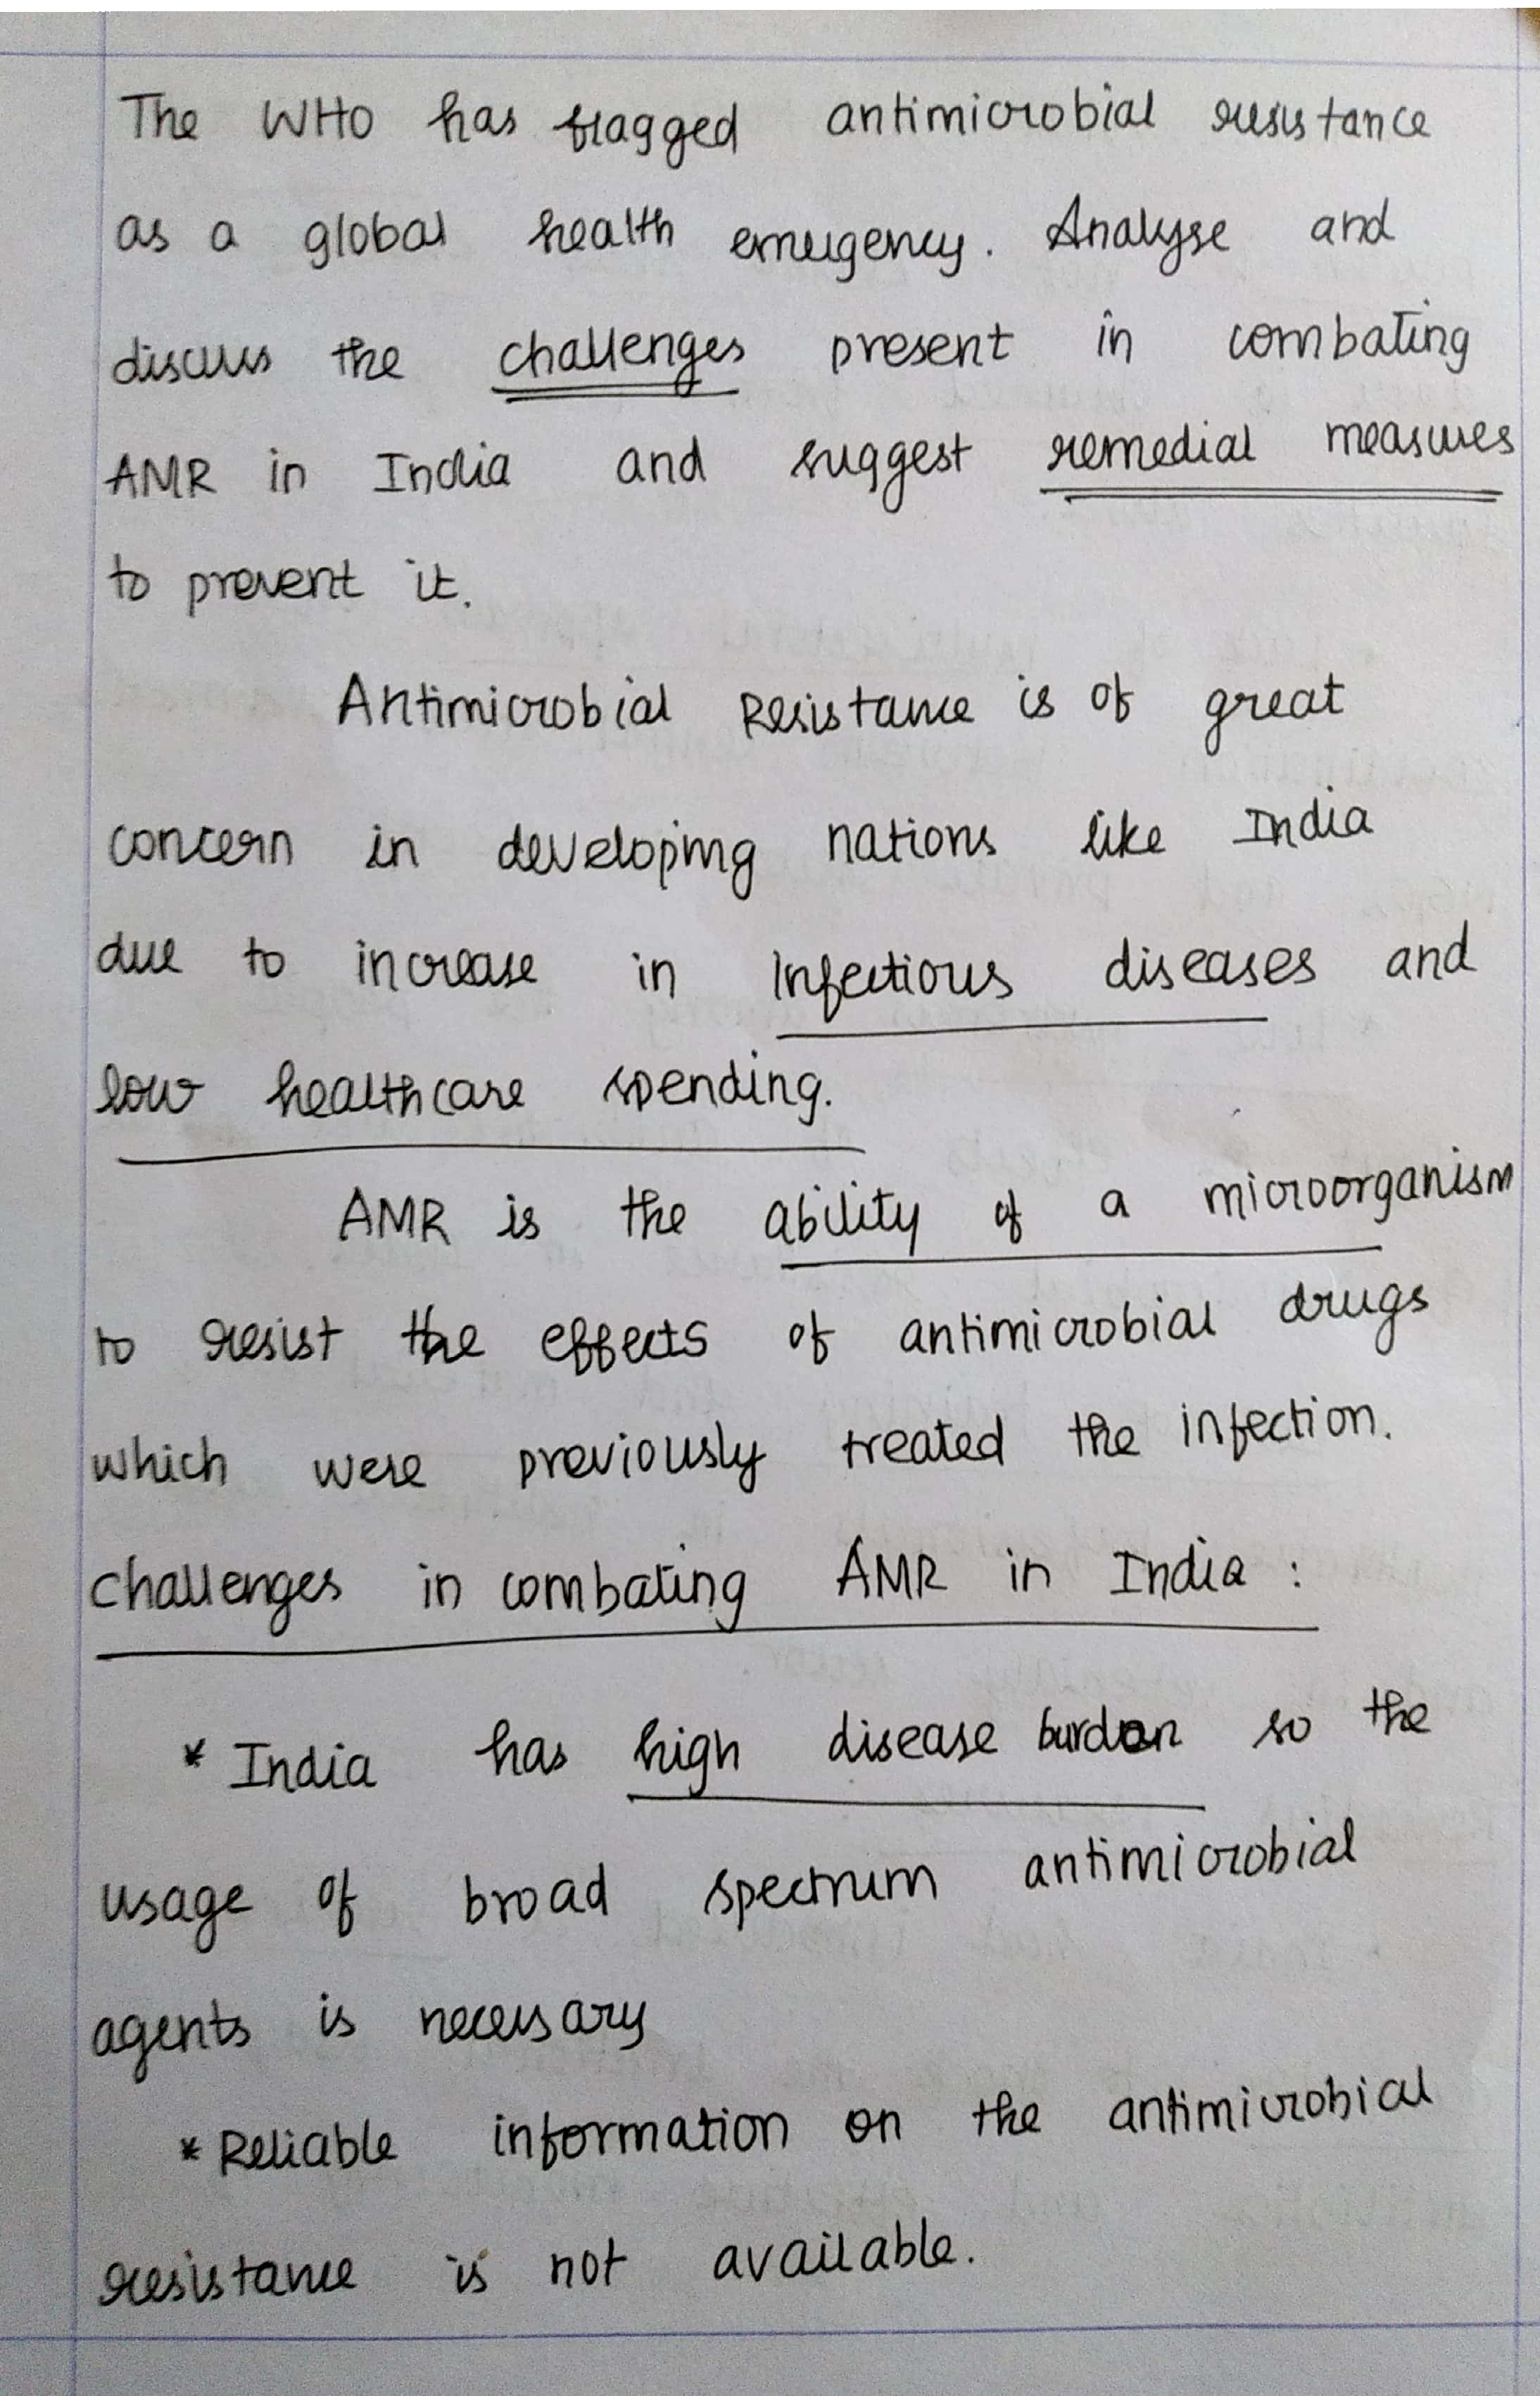 The WHO has flagged antimicrobial resistance
as a global health emergency. Analyse and
discuss the challenges present in combating
AMR in India and suggest remedial measures
to prevent it.
Antimicrobial Resistance is of great
concern in developing nations like India
due to increase in Infectious diseases and
low healthcare spending.
AMR is the ability of a microorganism
to resist the effects of antimicrobial drugs
which were previously treated the infection.
Challenges in combating AMR in India :
* India has high disease burden so the
usage of broad spectrum antimicrobial
agents is necessary
* Reliable information on the antimicrobial
resistance is not available.